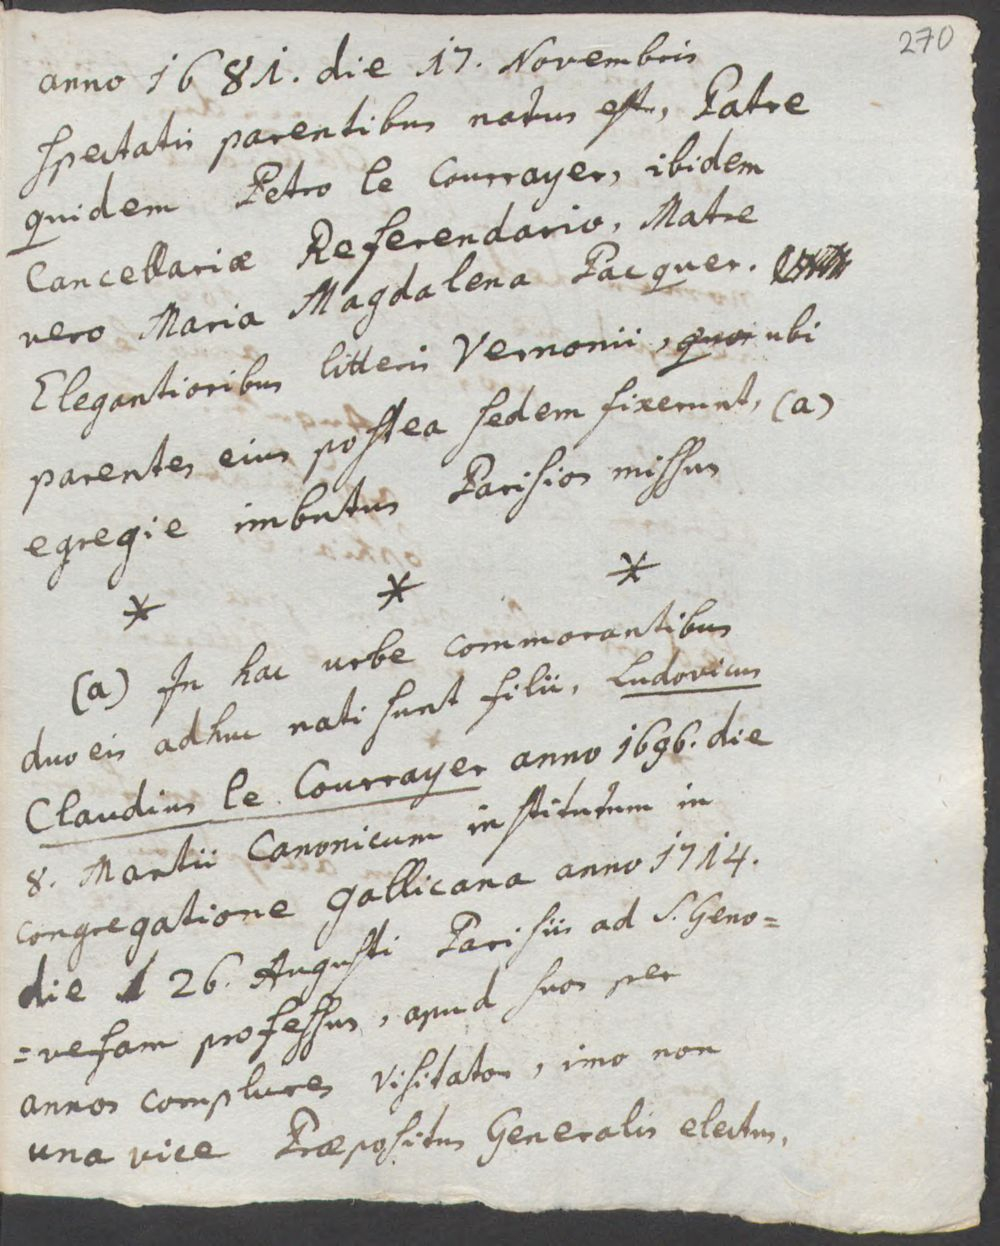 270
anno 1681. die 17. Novembris
spectatis parentibus natus est, Patre
quidem Petro le Courrayer, ibidem
Cancellariæ Referendario, Matre
vero Maria Magdalena Pacquer.
Elegantioribus litteris Vernonii, quo ubi
parentes eius postea sedem fixerunt, (a)
egregie imbutus Parisios missus
* * *
(a) In hac urbe commorantibus
duo eis adhuc nati sunt filii, Ludovicus
Claudius le Courrayer anno 1696. die
8. Martii Canonicum institutum in
congregatione gallicana anno 1714.
die 26. Augusti Parisiis ad S. Geno=
=vefam professus, apud suos per
annos complures visitator, imo non
una vice Præpositus Generalis electus,